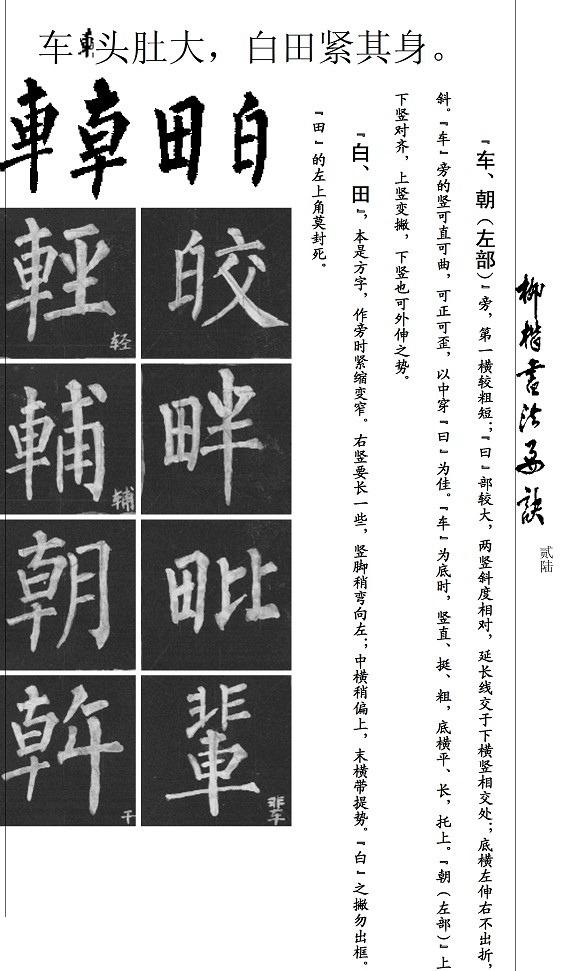 车头肚大，白田紧其身。
柳楷書法要訣
贰陆
『车、朝（左部）』旁，第一横较粗短；『曰』部较大，两竖斜度相对，延长线交于下横竖相交处；底横左伸右不出折，
斜。『车』旁的竖可直可曲，可正可歪，以中穿『曰』为佳。『车』为底时，竖直、挺、粗，底横平、长，托上。『朝（左部）』上
下竖对齐，上竖变撇，下竖也可外伸之势。
『白、田』，本是方字，作旁时紧缩变窄。右竖要长一些，竖脚稍弯向左；中横稍偏上，末横带提势。『白』之撇勿出框。
『田』的左上角莫封死。
車 𠦝 田 白
輕 轻 皎
輔 辅 畔
朝 毗
幹 干 輩 辈